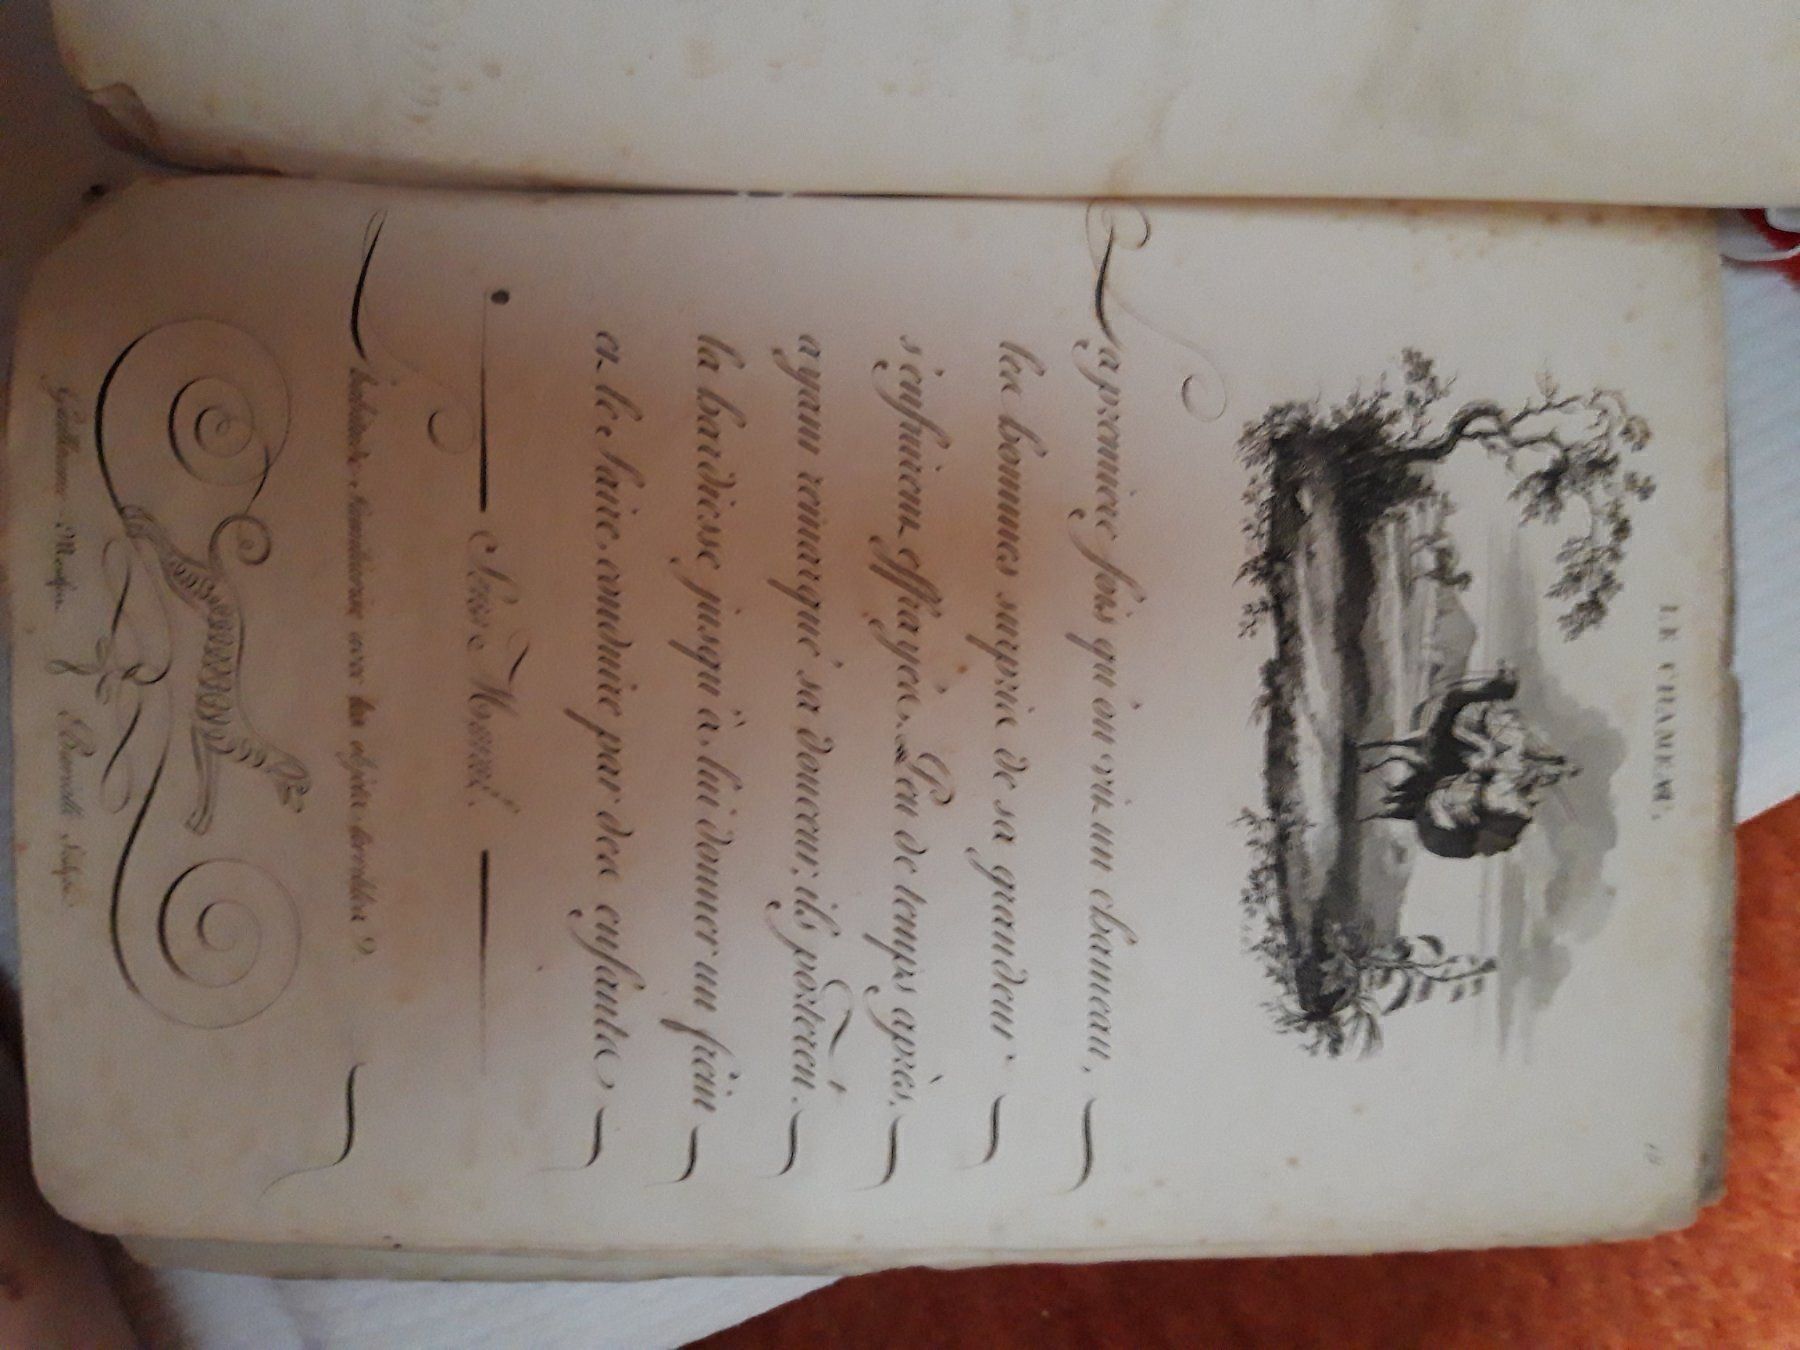 LE CHAMEAU.
La première fois qu'on vit un chameau,
les hommes surpris de sa grandeur
s'enfuirent effrayés. Peu de temps après,
ayant remarqué sa douceur, ils poussèrent
la hardiesse jusqu'à lui donner un frein
et le faire conduire par des enfants.
Sens Moral.
L'habitude familiarise avec les objets terribles.
Guillaume